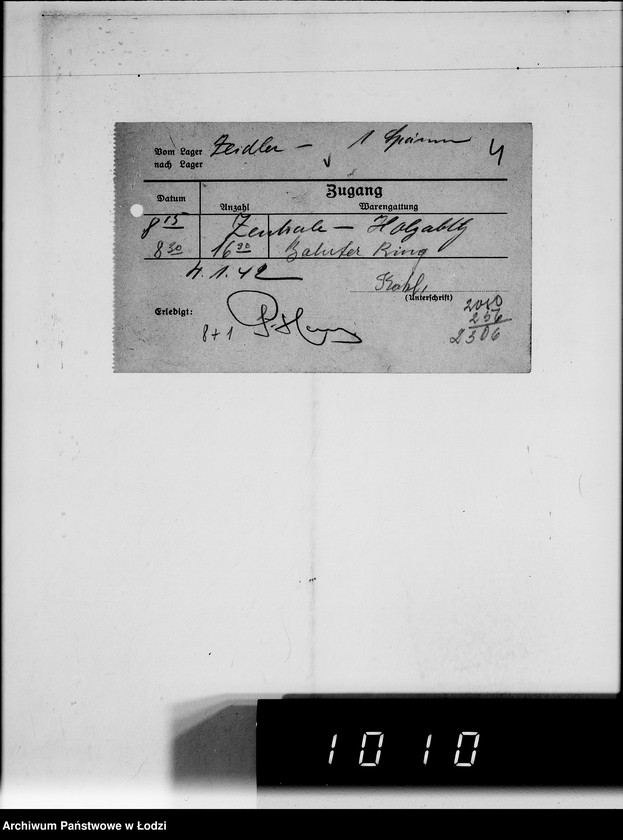 Vom Lager Zeidler — 1 Spänner 4
nach Lager
Zugang
Datum Anzahl Warengattung
8 15 Zentrale — Holzabtlg
8 30 16 30 Ring
4.1.42
(Unterschrift)
Erledigt:
8+1
2050
256
2306
1010
Archiwum Państwowe w Łodzi